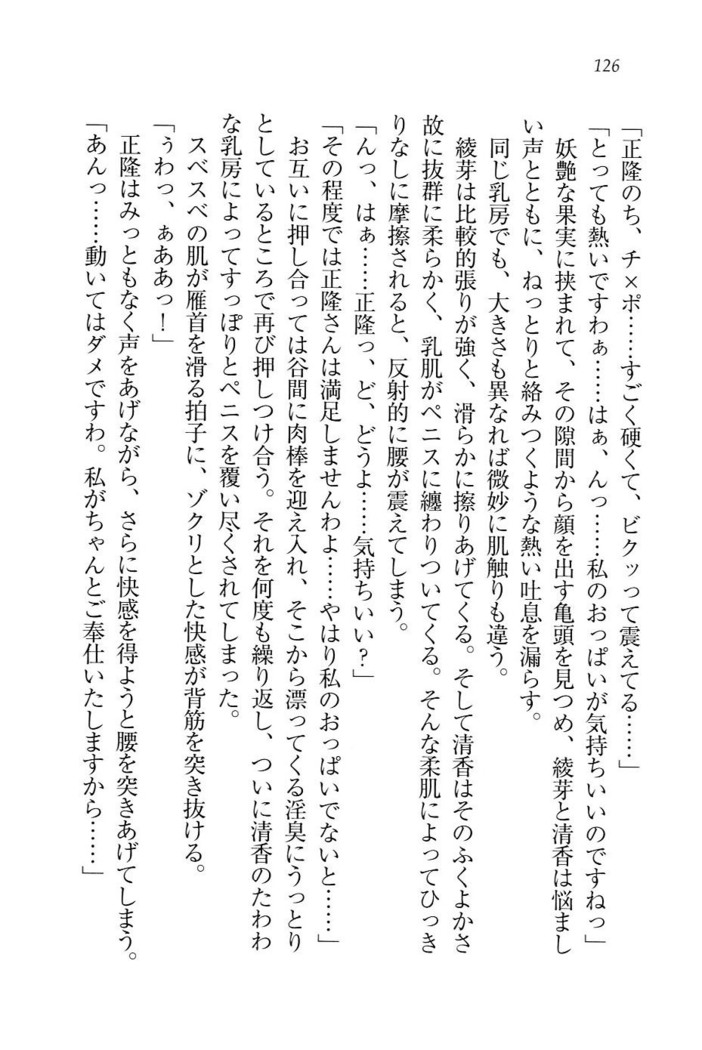 126
「正隆のち、チ×ポ……すごく硬くて、ビクッって震えてる……」
「とっても熱いですわぁ……はぁ、んっ……私のおっぱいが気持ちいいのですねっ」
妖艶な果実に挟まれて、その隙間から顔を出す亀頭を見つめ、綾芽と清香は悩まし
い声とともに、ねっとりと絡みつくような熱い吐息を漏らす。
同じ乳房でも、大きさも異なれば微妙に肌触りも違う。
綾芽は比較的張りが強く、滑らかに擦りあげてくる。そして清香はそのふくよかさ
故に抜群に柔らかく、乳肌がペニスに纏わりついてくる。そんな柔肌によってひっき
りなしに摩擦されると、反射的に腰が震えてしまう。
「んっ、はぁ……正隆っ、ど、どうよ……気持ちいい?」
「その程度では正隆さんは満足しませんわよ……やはり私のおっぱいでないと……」
お互いに押し合っては谷間に肉棒を迎え入れ、そこから漂ってくる淫臭にうっとり
としているところで再び押しつけ合う。それを何度も繰り返し、ついに清香のたわわ
な乳房によってすっぽりとペニスを覆い尽くされてしまった。
スベスベの肌が雁首を滑る拍子に、ゾクリとした快感が背筋を突き抜ける。
「うわっ、ぁああっ!」
正隆はみっともなく声をあげながら、さらに快感を得ようと腰を突きあげてしまう。
「あんっ……動いてはダメですわ。私がちゃんとご奉仕いたしますから……」